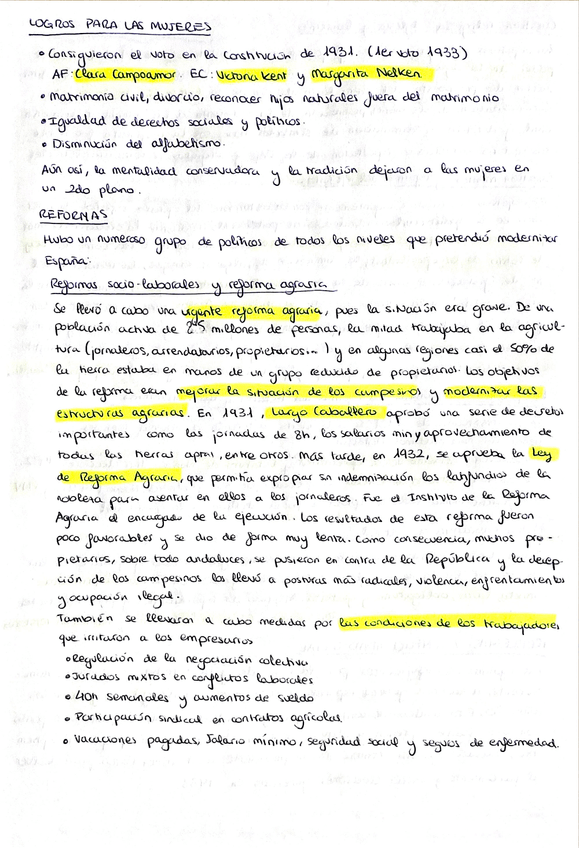 LOGROS PARA LAS MUJERES
• Consiguieron el voto en la Constitución de 1931. (1er voto 1933)
AF: Clara Campoamor. EC: Victoria Kent y Margarita Nelken
• Matrimonio civil, divorcio, reconocer hijos naturales fuera del matrimonio
• Igualdad de derechos sociales y políticos.
• Disminución del alfabetismo.
Aún así, la mentalidad conservadora y la tradición dejaron a las mujeres en
un 2do plano.
REFORMAS
Hubo un numeroso grupo de políticos de todos los niveles que pretendió modernizar
España:
Reformas socio-laborales y reforma agraria
Se llevó a cabo una urgente reforma agraria, pues la situación era grave. De una
población activa de millones de personas, la mitad trabajaba en la agricul-
tura (jornaleros, arrendatarios, propietarios...) y en algunas regiones casi el 50% de
la tierra estaba en manos de un grupo reducido de propietarios. Los objetivos
de la reforma eran mejorar la situación de los campesinos y modernizar las
estructuras agrarias. En 1931, Largo Caballero aprobó una serie de decretos
importantes como las jornadas de 8h, los salarios min y aprovechamiento de
todas las tierras aptas, entre otros. Más tarde, en 1932, se aprueba la Ley
de Reforma Agraria, que permitía expropiar sin indemnización los latifundios de la
nobleza para asentar en ellos a los jornaleros. Fue el Instituto de la Reforma
Agraria el encargado de la ejecución. Los resultados de esta reforma fueron
poco favorables y se dio de forma muy lenta. Como consecuencia, muchos pro-
pietarios, sobre todo andaluces, se pusieron en contra de la República y la decep-
ción de los campesinos los llevó a posturas más radicales, violencia, enfrentamientos
y ocupación ilegal.
También se llevaron a cabo medidas por las condiciones de los trabajadores
que irritaron a los empresarios
• Regulación de la negociación colectiva
• Jurados mixtos en conflictos laborales
• 40h semanales y aumentos de sueldo
• Participación sindical en contratos agrícolas
• Vacaciones pagadas, salario mínimo, seguridad social y seguros de enfermedad.